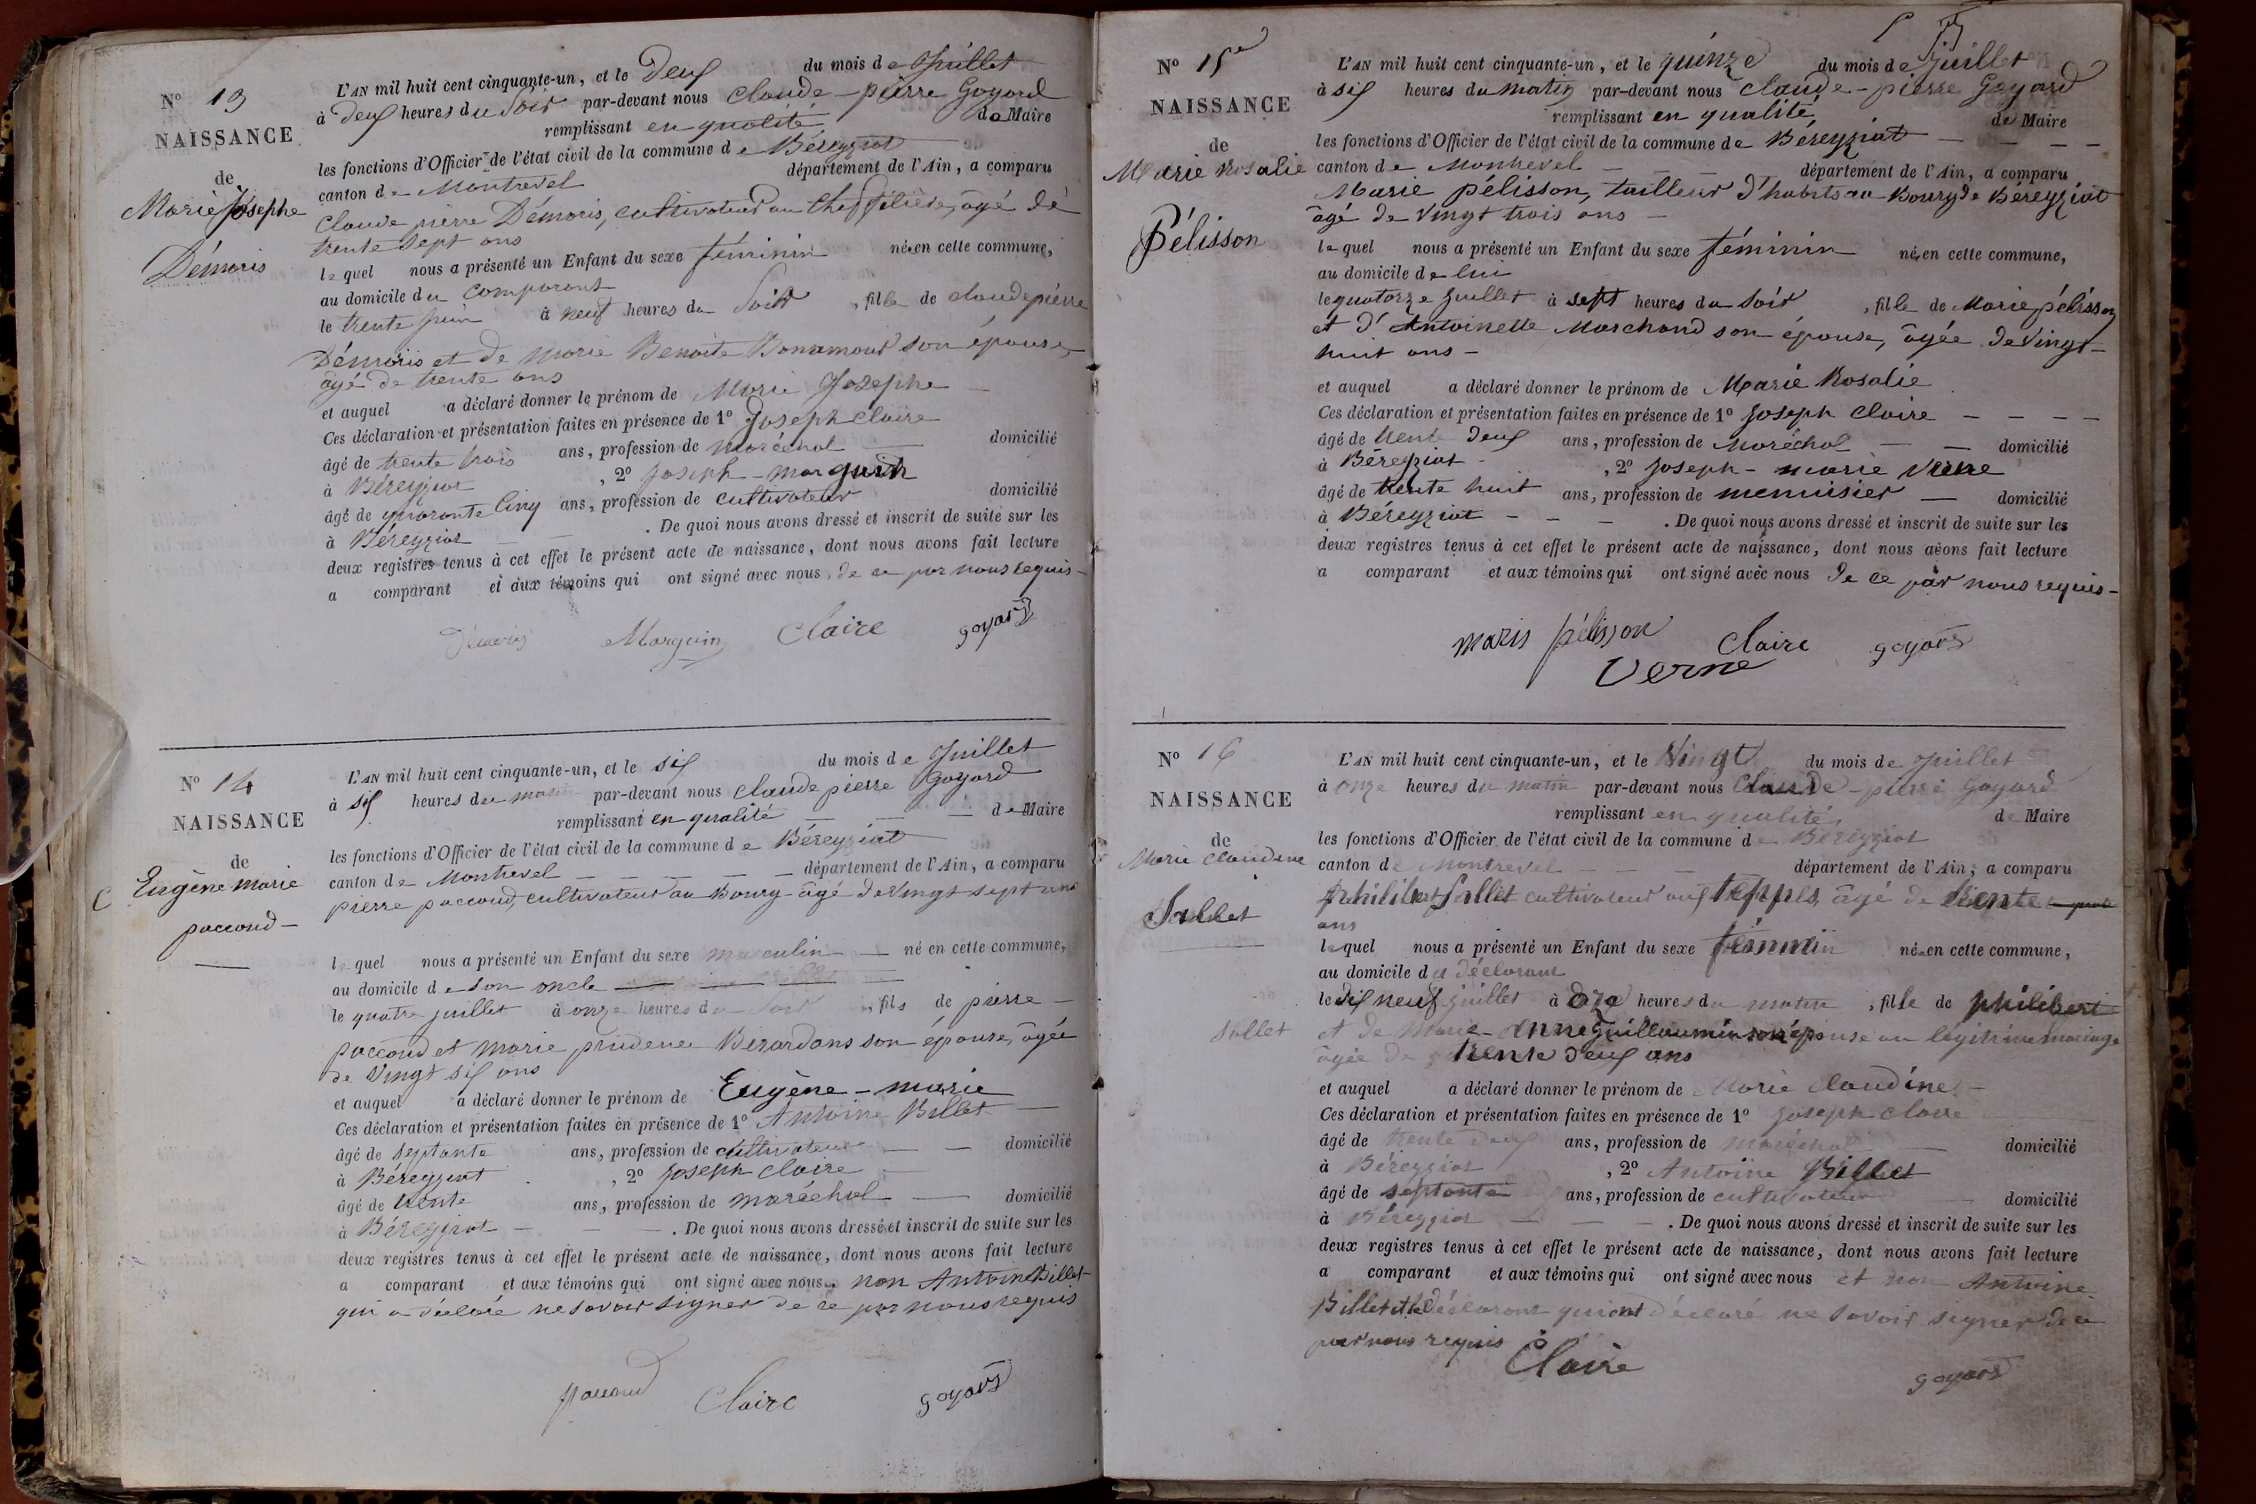 Nº 13
NAISSANCE
de
Marie Josephe
Démoris
L'AN mil huit cent cinquante-un, et le Deux du mois de Juillet
à Deux heures du Soir par-devant nous Claude-pierre Goyard
remplissant en qualité de Maire
les fonctions d'Officier de l'état civil de la commune de Béreyziat
canton de Montrevel département de l'Ain, a comparu
Claude pierre Démoris, cultivateur au âgé de
trente sept ans
lequel nous a présenté un Enfant du sexe féminin née en cette commune,
au domicile du comparant
le trente juin à neuf heures du Soir, fille de claude pierre
Démoris et de Marie Benoite Bonnamour son épouse,
âgé de trente ans
et auquel a déclaré donner le prénom de Marie Josephe
Ces déclaration et présentation faites en présence de 1º Joseph Claire
âgé de trente trois ans, profession de maréchal domicilié
à Béreyziat, 2º Joseph Marguin
âgé de quarante Cinq ans, profession de cultivateur domicilié
à Béreyziat. De quoi nous avons dressé et inscrit de suite sur les
deux registres tenus à cet effet le présent acte de naissance, dont nous avons fait lecture
a comparant et aux témoins qui ont signé avec nous, de ce par nous requis
Démoris Marguin Claire goyard
Nº 14
NAISSANCE
de
Eugène Marie
paccoud
L'AN mil huit cent cinquante-un, et le six du mois de Juillet
à six heures du matin par-devant nous claude pierre Goyard
remplissant en qualité de Maire
les fonctions d'Officier de l'état civil de la commune de Béreyziat
canton de Montrevel département de l'Ain, a comparu
pierre paccoud, cultivateur au Bourg âgé de Vingt sept ans
lequel nous a présenté un Enfant du sexe masculin né en cette commune,
au domicile de son oncle
le quatre juillet à onze heures du Soir, fils de pierre
paccoud et marie prudence Berardans son épouse, âgée
de Vingt six ans
et auquel a déclaré donner le prénom de Eugène-marie
Ces déclaration et présentation faites en présence de 1º Antoine Billet
âgé de septante ans, profession de cultivateur domicilié
à Béreyziat, 2º Joseph Claire
âgé de trente ans, profession de maréchal domicilié
à Béreyziat. De quoi nous avons dressé et inscrit de suite sur les
deux registres tenus à cet effet le présent acte de naissance, dont nous avons fait lecture
a comparant et aux témoins qui ont signé avec nous, non Antoine Billet
qui a déclaré ne savoir signer de ce par nous requis
paccoud Claire goyard
Nº 15
NAISSANCE
de
Marie Rosalie
Pélisson
L'AN mil huit cent cinquante-un, et le quinze du mois de Juillet
à six heures du matin par-devant nous claude-pierre Goyard
remplissant en qualité de Maire
les fonctions d'Officier de l'état civil de la commune de Béreyziat
canton de Montrevel département de l'Ain, a comparu
Marie pélisson, tailleur d'habits au Bourg de Béreyziat
âgé de vingt trois ans
lequel nous a présenté un Enfant du sexe féminin née en cette commune,
au domicile de lui
le quatorze Juillet à sept heures du Soir, fille de Marie pélisson
et d'Antoinette Marchand son épouse, âgée de Vingt-
huit ans
et auquel a déclaré donner le prénom de Marie Rosalie
Ces déclaration et présentation faites en présence de 1º Joseph Claire
âgé de trente deux ans, profession de Maréchal domicilié
à Béreyziat, 2º Joseph-marie Verne
âgé de trente huit ans, profession de menuisier domicilié
à Béreyziat. De quoi nous avons dressé et inscrit de suite sur les
deux registres tenus à cet effet le présent acte de naissance, dont nous avons fait lecture
a comparant et aux témoins qui ont signé avec nous de ce par nous requis
maris pélisson Claire goyard
Verne
Nº 16
NAISSANCE
de
Marie Claudine
Sullet
Sullet
L'AN mil huit cent cinquante-un, et le Vingt du mois de Juillet
à onze heures du matin par-devant nous Claude-pierre Goyard
remplissant en qualité de Maire
les fonctions d'Officier de l'état civil de la commune de Béreyziat
canton de Montrevel département de l'Ain, a comparu
philibert Sullet cultivateur aux âgé de trente
ans
lequel nous a présenté un Enfant du sexe féminin née en cette commune,
au domicile du déclarant
le dix neuf juillet à heures du matin, fille de philibert
et de Marie-Anne Guillaumin son épouse en légitime mariage
âgée de trente deux ans
et auquel a déclaré donner le prénom de Marie Claudine
Ces déclaration et présentation faites en présence de 1º Joseph Claire
âgé de trente deux ans, profession de maréchal domicilié
à Béreyziat, 2º Antoine Billet
âgé de septante ans, profession de cultivateur domicilié
à Béreyziat. De quoi nous avons dressé et inscrit de suite sur les
deux registres tenus à cet effet le présent acte de naissance, dont nous avons fait lecture
a comparant et aux témoins qui ont signé avec nous et non Antoine
Billet et le déclarant qui ont déclaré ne savoir signer de ce
par nous requis
Claire goyard